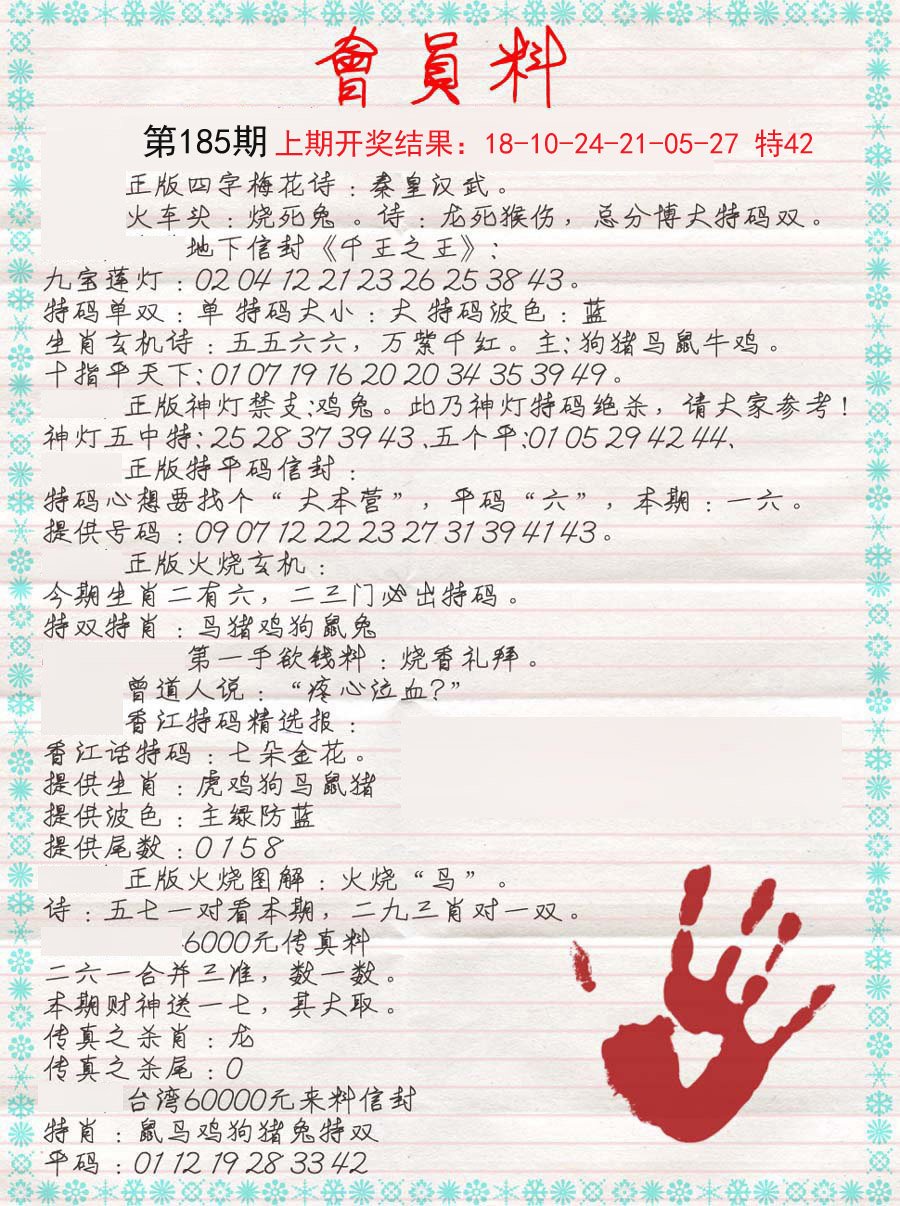 會員料
第185期 上期开奖结果：18-10-24-21-05-27 特42
正版四字梅花诗：秦皇汉武。
火车头：烧死兔。诗：龙死猴伤，总分博大特码双。
地下信封《千王之王》：
九宝莲灯：02 04 12 21 23 26 25 38 43。
特码单双：单 特码大小：大 特码波色：蓝
生肖玄机诗：五五六六，万紫千红。主：狗猪鸟鼠牛鸡。
十指平天下：01 07 19 16 20 20 34 35 39 49。
正版神灯禁支：鸡兔。此乃神灯特码绝杀，请大家参考！
神灯五中特：25 28 37 39 43、五个平：01 05 29 42 44、
正版特平码信封：
特码心想要找个“大本营”，平码“六”，本期：一六。
提供号码：09 07 12 22 23 27 31 39 41 43。
正版火烧玄机：
今期生肖二有六，二三门必出特码。
特双特肖：鸟猪鸡狗鼠兔
第一手欲钱料：烧香礼拜。
曾道人说：“疼心泣血？”
香江特码精选报：
香江话特码：七朵金花。
提供生肖：虎鸡狗马鼠猪
提供波色：主绿防蓝
提供尾数：0 1 5 8
正版火烧图解：火烧“鸟”。
诗：五七一对看本期，二九三肖对一双。
6000元传真料
二六一合并三准，数一数。
本期财神送一七，其大取。
传真之杀肖：龙
传真之杀尾：0
台湾60000元来料信封
特肖：鼠鸟鸡狗猪兔特双
平码：01 12 19 28 33 42